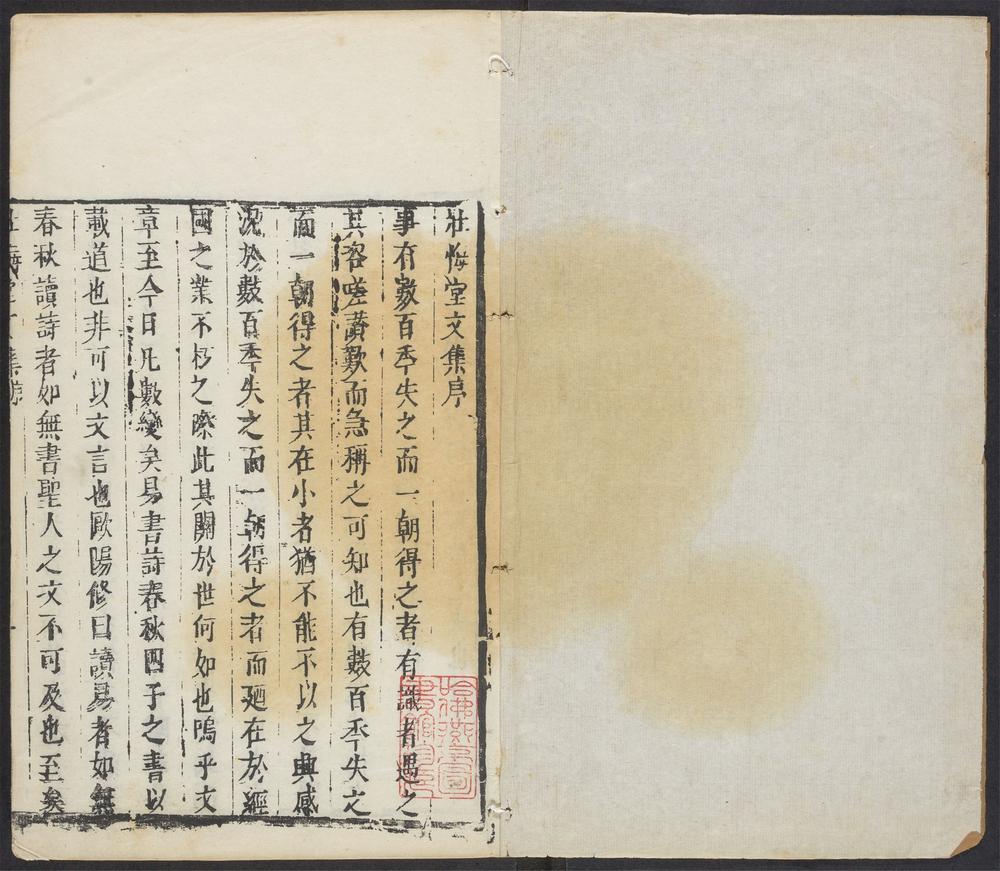 壯悔堂文集序
事有數百季失之而一朝得之者有識者遇之
其咨嗟讚歎而急稱之可知也有數百季失之
而一朝得之者其在小者猶不能不以之興感
況於數百季失之而一朝得之者而廼在於經
國之業不朽之際此其關於世何如也嗚乎文
章至今日凡數變矣易書詩春秋四子之書以
載道也非可以文言也歐陽修曰讀易者如無
春秋讀詩者如無書聖人之文不可及也至矣
壯悔堂文集序
哈佛燕京圖書館